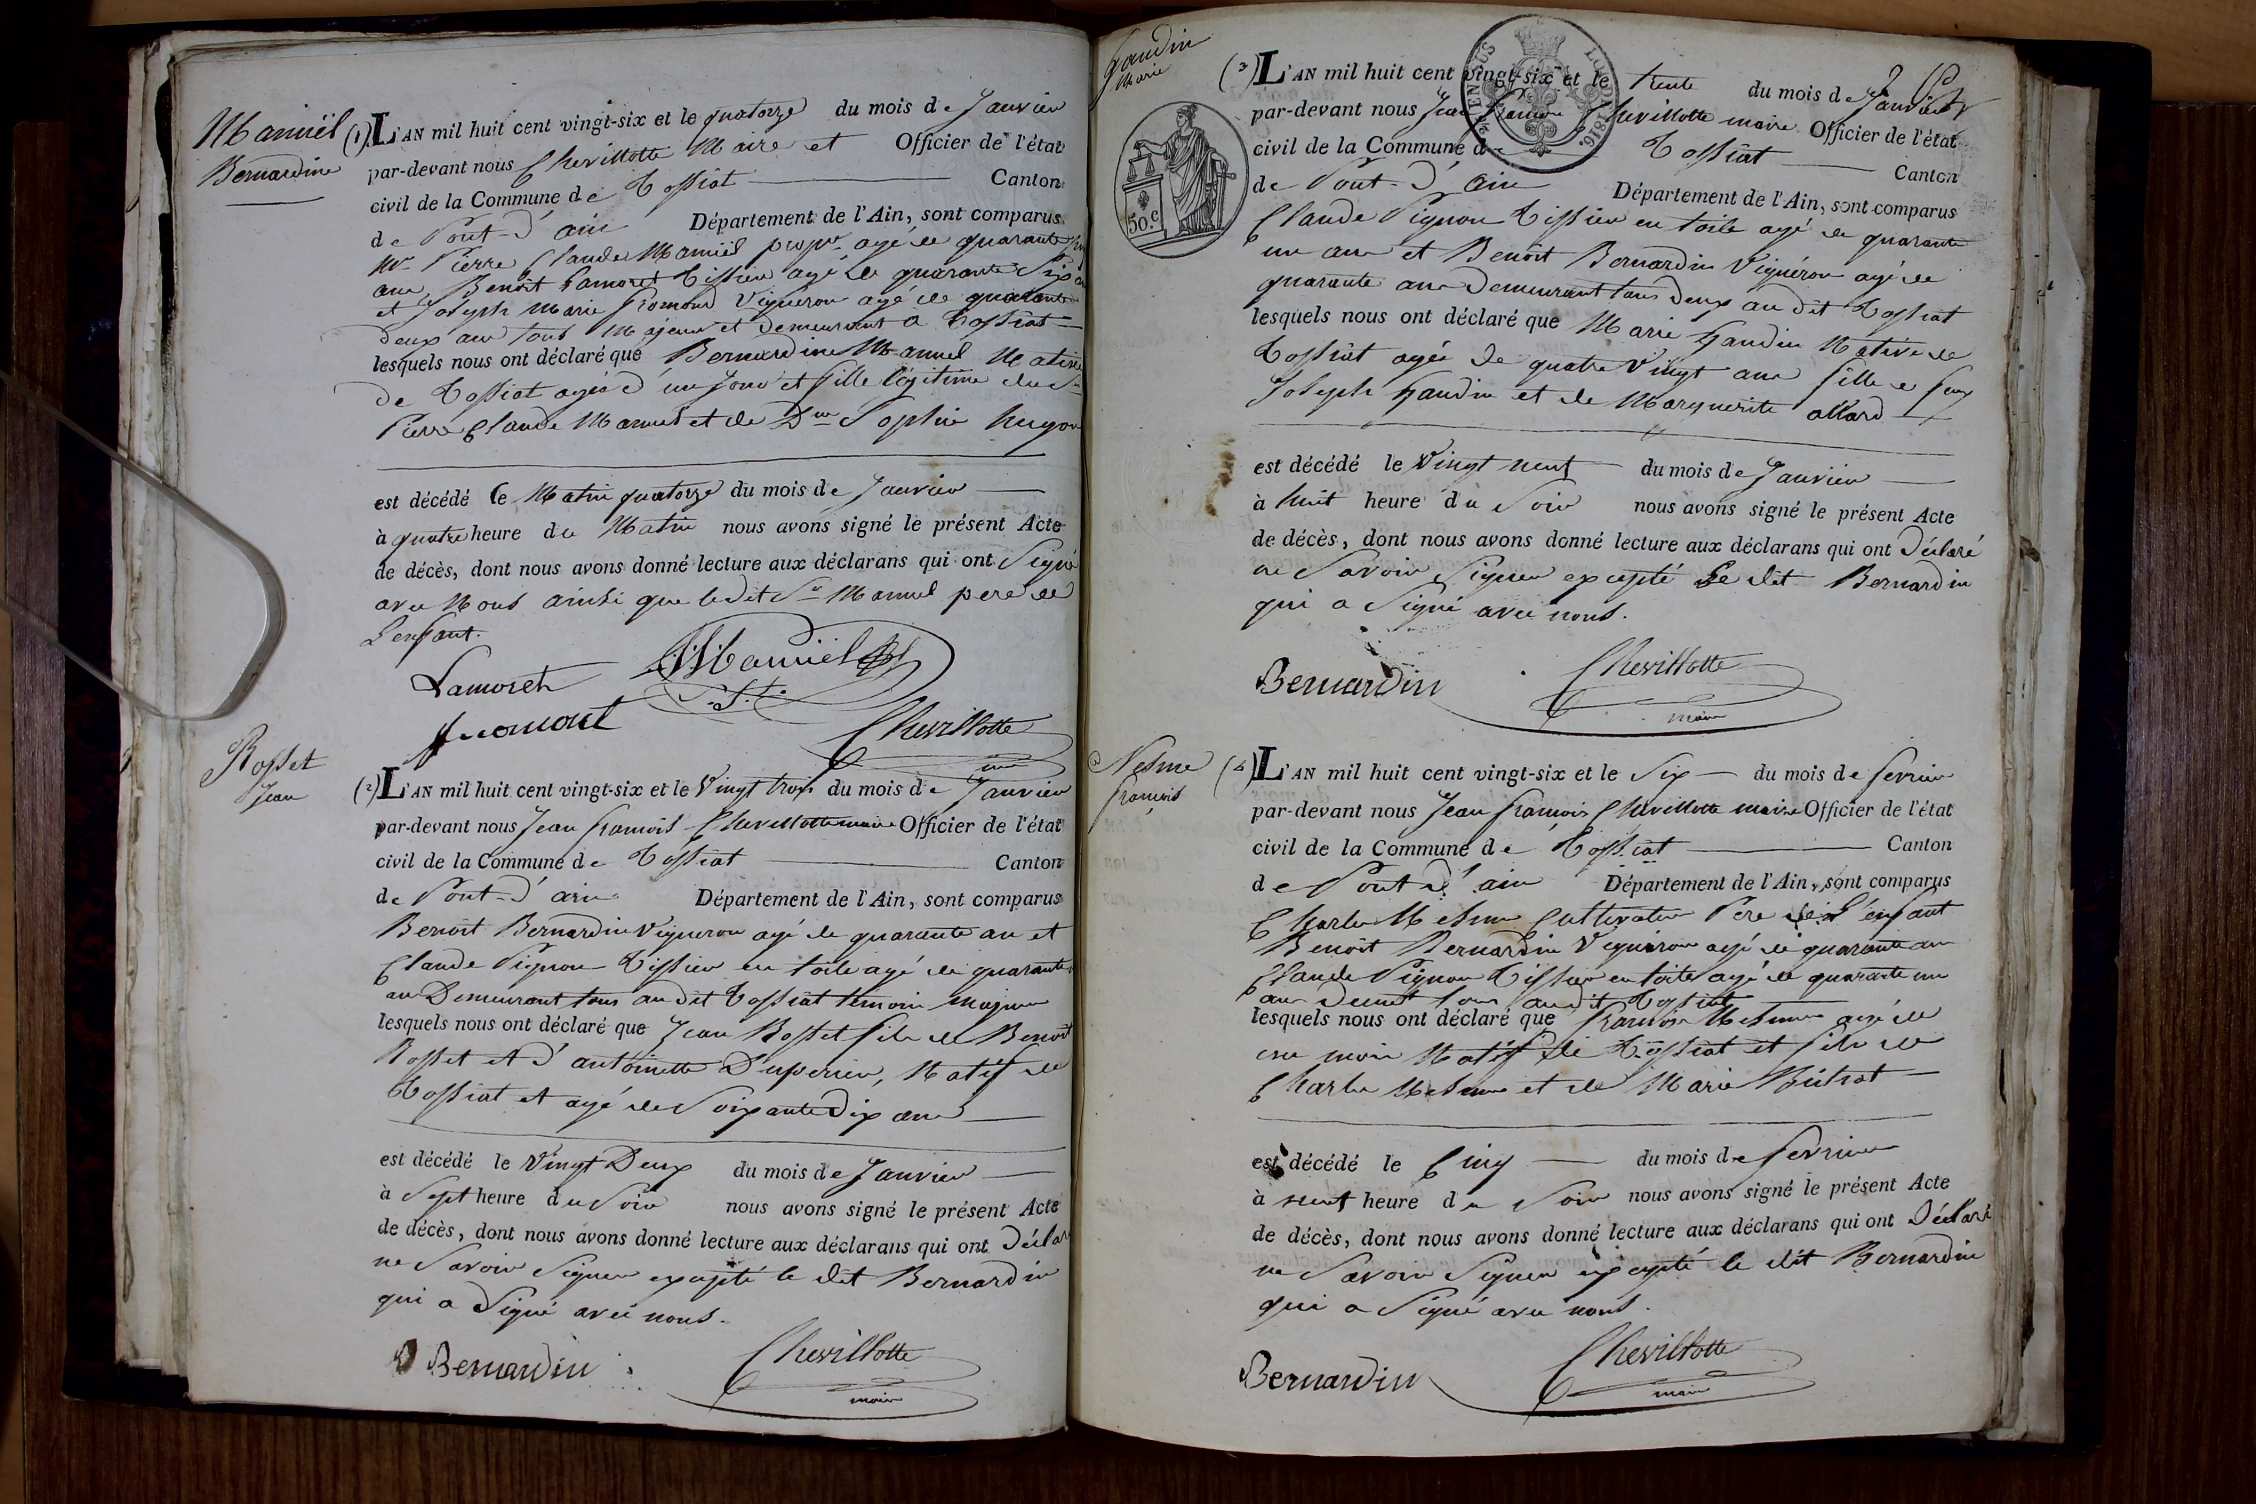 Manuël
Bernardine
(1) L'AN mil huit cent vingt-six et le quatorze du mois de Janvier
par-devant nous Chevillotte Maire et Officier de l'état
civil de la Commune de Tossiat Canton
de Pont-d'ain Département de l'Ain, sont comparus
Mr Pierre Claude Manuël propre agé de quarante
ans, Benoit Lamoret Tissier agé de quarante six ans
et Joseph Marie fromond Vigneron agé de quarante
deux ans tous Majeurs et demeurant a Tossiat
lesquels nous ont déclaré que Bernardine Manuël Native
de Tossiat agée d'un Jour et fille légitime du Sr
Pierre Claude Manuel et de Dme Sophie hugon
est décédé le Matin quatorze du mois de Janvier
à quatre heure du Matin nous avons signé le présent Acte
de décès, dont nous avons donné lecture aux déclarans qui ont Signé
avec Nous ainsi que le dit Sr Manuel pere de
L'enfant.
Lamoreth Manuël
fromont Chevillotte
Rosset
Jean
(2) L'AN mil huit cent vingt-six et le Vingt trois du mois de Janvier
par-devant nous Jean francois Chevillotte maire Officier de l'état
civil de la Commune de Tossiat Canton
de Pont-d'ain Département de l'Ain, sont comparus
Benoit Bernardin Vigneron agé de quarante an et
Claude Pignon Tissier en toile agé de quarante
an Demeurant tous au dit Tossiat témoin majeur
lesquels nous ont déclaré que Jean Rosset fils de Benoit
Rosset et d'antoinette Duperrier, Natif de
Tossiat et agé de Soixante Dix ans
est décédé le Vingt Deux du mois de Janvier
à Sept heure du Soir nous avons signé le présent Acte
de décès, dont nous avons donné lecture aux déclarans qui ont Déclaré
ne Savoir Signer excepté le dit Bernardin
qui a Signé avec nous.
Bernardin Chevillotte
maire
gaudin
Marie
LOI DU 1816.
50.c
(3) L'AN mil huit cent vingt-six et le trente du mois de Janvier
par-devant nous Jean francois Chevillotte maire Officier de l'état
civil de la Commune de Tossiat Canton
de Pont-d'ain Département de l'Ain, sont comparus
Claude Pignon Tissier en toile agé de quarante
un ans et Benoit Bernardin Vignéron agé de
quarante ans Demeurant tous deux au dit Tossiat
lesquels nous ont déclaré que Marie gaudin Native de
Tossiat agée de quatre Vingt ans fille de feux
Joseph gaudin et de Marguerite allard
est décédé le Vingt neuf du mois de Janvier
à huit heure du Soir nous avons signé le présent Acte
de décès, dont nous avons donné lecture aux déclarans qui ont Déclaré
ne Savoir Signer excepté Le dit Bernardin
qui a Signé avec nous.
Bernardin Chevillotte
maire
Nesme
francois
(4) L'AN mil huit cent vingt-six et le Six du mois de fevrier
par-devant nous Jean francois Chevillotte maire Officier de l'état
civil de la Commune de Tossiat Canton
de Pont d'ain Département de l'Ain, sont comparus
Charles Nesme Cultivateur Pere de L'enfant
Benoit Bernardin Vigneron agé de quarante an
Claude Pignon Tissier en toile agé de quarante un
ans demt tous au dit Tossiat
lesquels nous ont déclaré que francois Nesme agé de
un mois Natif de Tossiat et fils de
Charles Nesme et de Marie
est décédé le Cinq du mois de fevrier
à neuf heure du Soir nous avons signé le présent Acte
de décès, dont nous avons donné lecture aux déclarans qui ont Déclaré
ne Savoir Signer excepté le dit Bernardin
qui a Signé avec nous.
Bernardin Chevillotte
maire